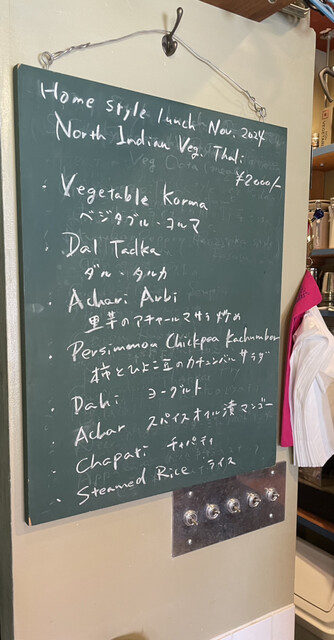 Home style lunch Nov. 2024
North Indian Veg. Thali
¥2000/-
・Vegetable Korma
ベジタブル・コルマ
・Dal Tadka
ダル・タルカ
・Achari Arbi
里芋のアチャールマサラ炒め
・Persimmon Chickpea Kachumber
柿とひよこ豆のカチュンバルサラダ
・Dahi ヨーグルト
・Achar スパイスオイル漬マンゴー
・Chapati チャパティ
・Steamed Rice ライス